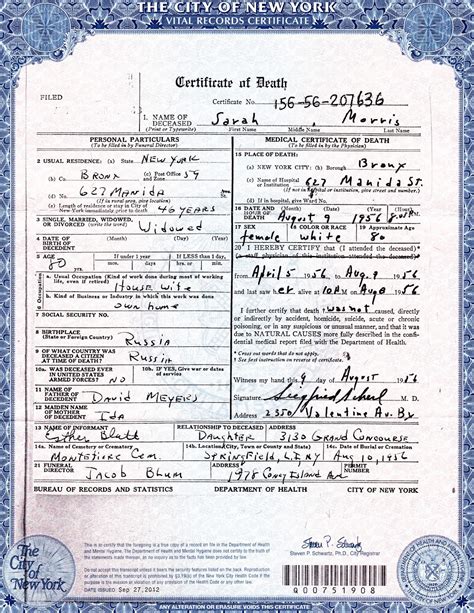 THE CITY OF NEW YORK
VITAL RECORDS CERTIFICATE
Certificate of Death
FILED
Certificate No. 156-56-207636
1. NAME OF DECEASED (Print or Typewrite) Sarah Morris
First Name Middle Name Last Name
PERSONAL PARTICULARS
(To be filled in by Funeral Director)
2 USUAL RESIDENCE: (a) State New York
(b) Co. Bronx (c) Post Office 59
(d) No. 627 Manida
(If in rural area, give location)
(e) Length of residence or stay in City of New York immediately prior to death 46 years
3 SINGLE, MARRIED, WIDOWED, OR DIVORCED (write the word) Widowed
4 DATE OF BIRTH OF DECEDENT (Month) (Day) (Year)
5 AGE 80 yrs. If under 1 year If LESS than 1 day,
6 Occupation a. Usual Occupation (Kind of work done during most of working life, even if retired)
House wife
b. Kind of Business or Industry in which this work was done
own home
7 SOCIAL SECURITY NO.
8 BIRTHPLACE (State or Foreign Country) Russia
9 OF WHAT COUNTRY WAS DECEASED A CITIZEN AT TIME OF DEATH? Russia
10a. WAS DECEASED EVER IN UNITED STATES ARMED FORCES? No 10b. IF YES, Give war or dates of service
11 NAME OF FATHER OF DECEDENT David Meyers
12 MAIDEN NAME OF MOTHER OF DECEDENT Ida
MEDICAL CERTIFICATE OF DEATH
(To be filled in by the Physician)
15 PLACE OF DEATH:
(a) NEW YORK CITY: (b) Borough Bronx
(c) Name of Hospital or Institution 627 Manida St.
(If not in hospital or institution, give street and number)
(d) If in hospital, give Ward No.
16 DATE AND HOUR OF DEATH (Month) August (Day) 9 (Year) 1956 (Hour)
17 SEX female 18 COLOR OR RACE white 19 Approximate Age 80
20 I HEREBY CERTIFY that (I attended the deceased)*
(a staff physician of this institution attended the deceased)*
from April 5 1956 Aug. 9 1956
and last saw her alive at 10 M on Aug 1956
I further certify that death was not caused, directly or indirectly by accident, homicide, suicide, acute or chronic poisoning, or in any suspicious or unusual manner, and that it was due to NATURAL CAUSES more fully described in the confidential medical report filed with the Department of Health.
* Cross out words that do not apply.
* See first instruction on reverse of certificate.
Witness my hand this 9 day of August 1956
Signature
Address 2350 Valentine Av. Bx
13 NAME OF INFORMANT Esther Blatt RELATIONSHIP TO DECEASED Daughter ADDRESS 3130 Grand Concourse
14a. Name of Cemetery or Crematory Montefiore Cem. 14b. Location (City, Town or County and State) Springfield, L.I. NY 14c. Date of Burial or Cremation Aug 10, 1956
21 FUNERAL DIRECTOR Jacob Blum ADDRESS 1978 Coney Island Ave PERMIT NUMBER
BUREAU OF RECORDS AND STATISTICS DEPARTMENT OF HEALTH CITY OF NEW YORK
The City of New York
This is to certify that the foregoing is a true copy of a record on file in the Department of Health and Mental Hygiene. The Department of Health and Mental Hygiene does not certify to the truth of the statements made thereon, as no inquiry as to the facts has been provided by law.
Steven P. Schwartz, Ph.D., City Registrar
Do not accept this transcript unless it bears the security features listed on the back. Reproduction or alteration of this transcript is prohibited by §3.19(b) of the New York City Health Code if the purpose is the evasion or violation of any provision of the Health Code or any other law.
DATE ISSUED Sep 27, 2012
Q00751908
ANY ALTERATION OR ERASURE VOIDS THIS CERTIFICATE